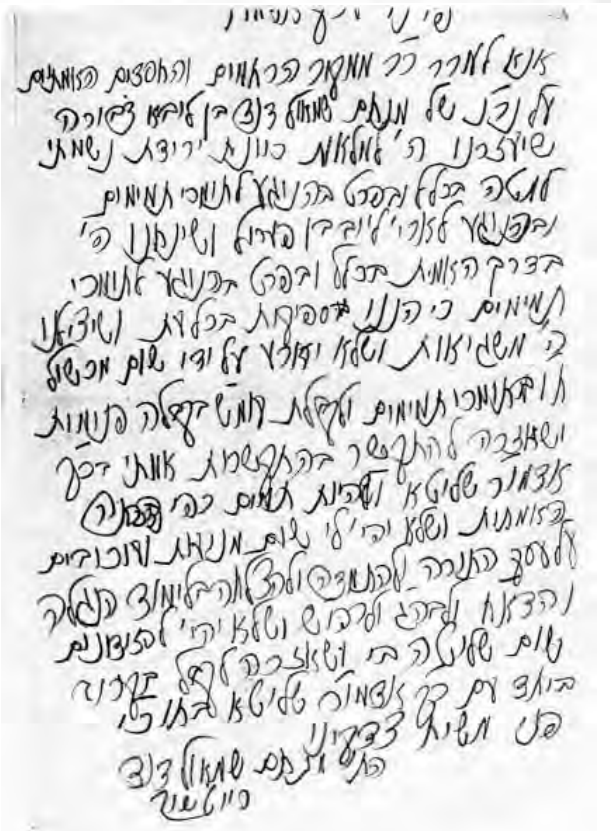 אנא לעורר ר"ר ממקור הרחמים והחסדים האמתים
על נר"נ של מנחם שמואל דוד בן ליבא דבורה
שיעזרנו ה' למלאות כוונת ירידת נשמתי
למטה בכלל ובפרט בהנוגע לתומכי תמימים
ובהנוגע ליוב בן ושינחנו ה'
בדרך האמת בכלל ובפרט בהנוגע לתומכי
תמימים כי הננו בספיקות בכל עת ושיצילנו
ה' משגיאות ושלא יאורע על ידי שום מכשול
ח"ו בתומכי תמימים ולקבלת עומ"ש בקבלה פנימית
ושאזכה להתקשר בהתקשרות אמתי בכ"ק
אדמו"ר שליטא ולהיות תמים כפי הכוונה
האמתית ושלא יהי' לי שום מניעות ועיכובים
על עסק התורה ולהתמדה ולהצלחה בלימוד הנגלה
והדא"ח ושלא יהי'
שום שליטה בי ושאזכה לקבל בקרוב
ביחד עם כ"ק אדמו"ר שליטא
פני משיח צדקינו
הת' מנחם שמואל דוד
רייטשיק